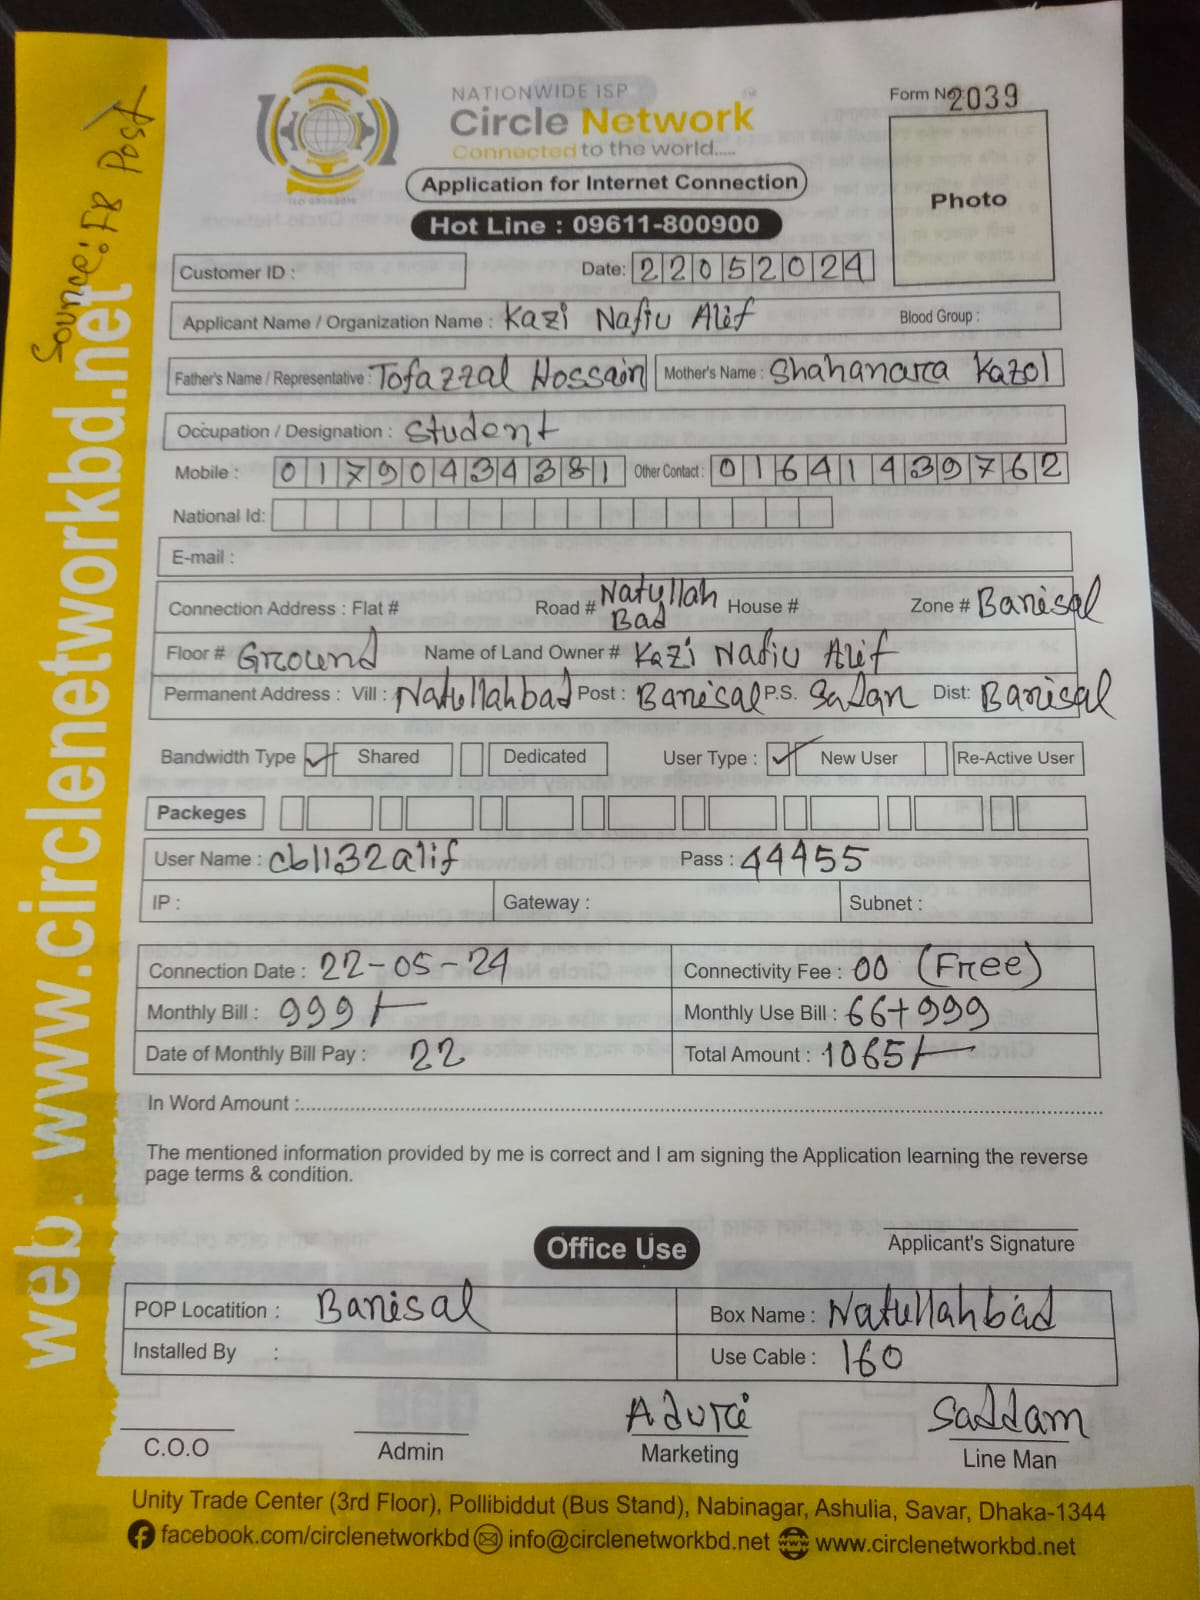 NATIONWIDE ISP
Circle Network
Connected to the world.....
Application for Internet Connection
Hot Line : 09611-800900
Form No 2039
Photo
Source: FB Post
web. www.circlenetworkbd.net
Customer ID :
Date: 22052024
Applicant Name / Organization Name : Kazi Nafiu Alif Blood Group :
Father's Name / Representative : Tofazzal Hossain Mother's Name : Shahanara Kazol
Occupation / Designation : Student
Mobile : 01790434381 Other Contact : 01641439762
National Id:
E-mail :
Connection Address : Flat # Road # Natullah Bad House # Zone # Barisal
Floor # Ground Name of Land Owner # Kazi Nafiu Alif
Permanent Address : Vill : Natullahbad Post : Barisal P.S. Sadar Dist: Barisal
Bandwidth Type Shared Dedicated User Type : New User Re-Active User
Packeges
User Name : cb1132alif Pass : 44455
IP : Gateway : Subnet :
Connection Date : 22-05-24 Connectivity Fee : 00 (Free)
Monthly Bill : 999/- Monthly Use Bill : 66+999
Date of Monthly Bill Pay : 22 Total Amount : 1065/-
In Word Amount :
The mentioned information provided by me is correct and I am signing the Application learning the reverse
page terms & condition.
Applicant's Signature
Office Use
POP Locatition : Barisal Box Name : Natullahbad
Installed By : Use Cable : 160
Aduri Saddam
C.O.O Admin Marketing Line Man
Unity Trade Center (3rd Floor), Pollibiddut (Bus Stand), Nabinagar, Ashulia, Savar, Dhaka-1344
facebook.com/circlenetworkbd info@circlenetworkbd.net www.circlenetworkbd.net